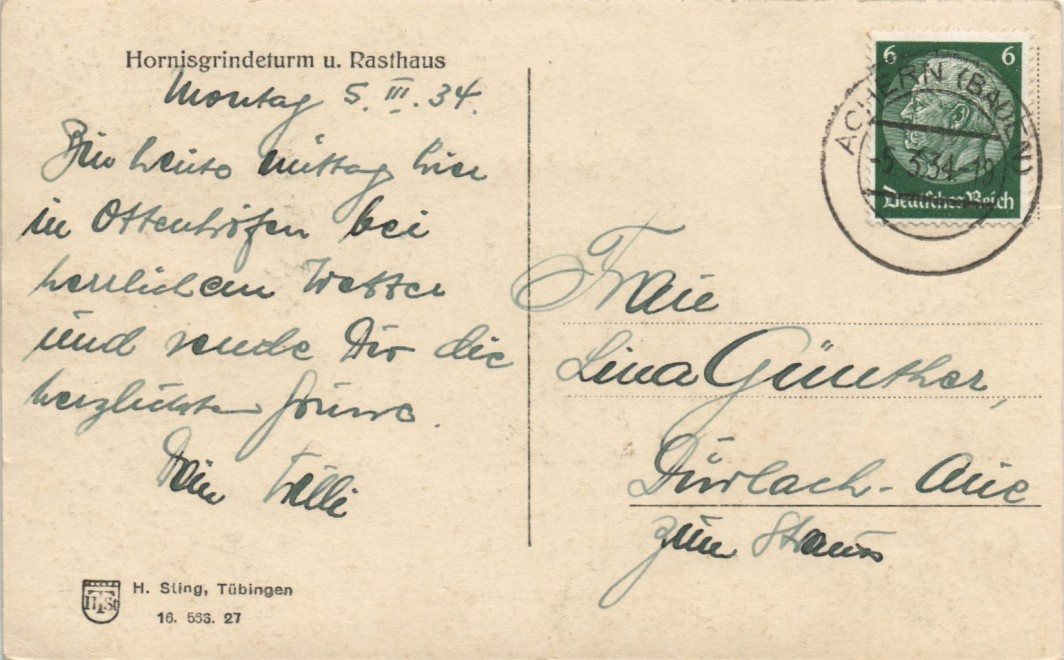 Hornisgrindeturm u. Rasthaus
Montag 5. III. 34.
Bin heute mittag hier
in Ottenhöfen bei
herrlichem Wetter
und sende Dir die
herzlichsten Grüsse.
Dein Willi
H. Sting, Tübingen
16. 563. 27
H St
6 6
Deutsches Reich
ACHERN (BADEN)
-5.3.34-19
Frau
Lina Günther,
Durlach-Aue
zum Strauss